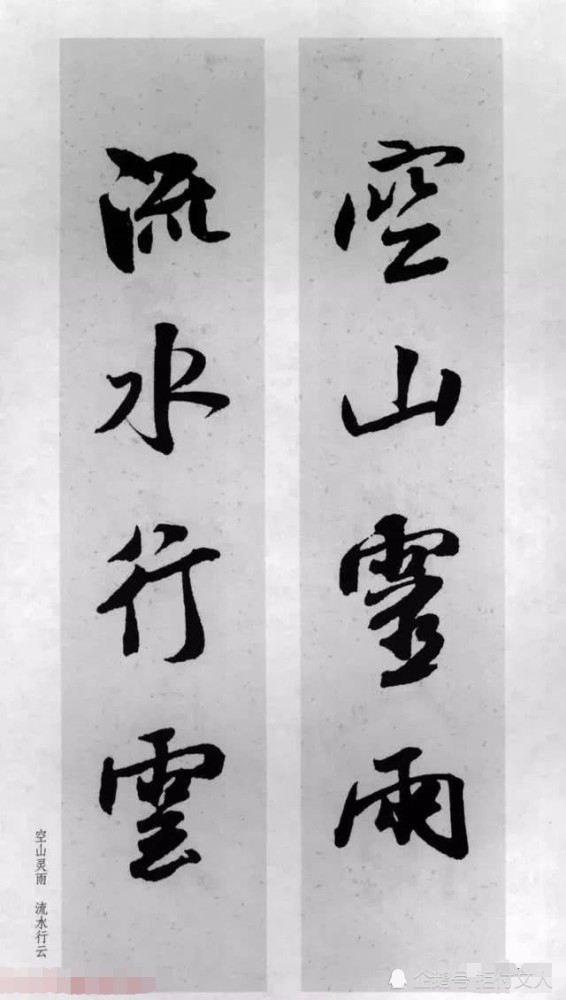 空山靈雨
流水行雲
空山灵雨 流水行云
企鹅号